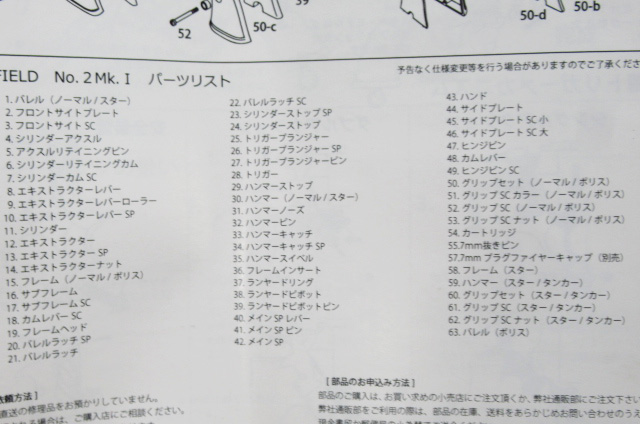 39
52
50-c
50-d
50-b
FIELD No.2Mk.I パーツリスト
予告なく仕様変更等を行う場合がありますのでご了承くださ
1. バレル（ノーマル / スター）
2. フロントサイトプレート
3. フロントサイト SC
4. シリンダーアクスル
5. アクスルリテイニングピン
6. シリンダーリテイニングカム
7. シリンダーカム SC
8. エキストラクターレバー
9. エキストラクターレバーローラー
10. エキストラクターレバー SP
11. シリンダー
12. エキストラクター
13. エキストラクター SP
14. エキストラクターナット
15. フレーム（ノーマル / ポリス）
16. サブフレーム
17. サブフレーム SC
18. カムレバー SC
19. フレームヘッド
20. バレルラッチ SP
21. バレルラッチ
22. バレルラッチ SC
23. シリンダーストップ SP
24. シリンダーストップ
25. トリガープランジャー
26. トリガープランジャー SP
27. トリガープランジャーピン
28. トリガー
29. ハンマーストップ
30. ハンマー（ノーマル / スター）
31. ハンマーノーズ
32. ハンマーピン
33. ハンマーキャッチ
34. ハンマーキャッチ SP
35. ハンマースイベル
36. フレームインサート
37. ランヤードリング
38. ランヤードピボット
39. ランヤードピボットピン
40. メイン SP レバー
41. メイン SP ピン
42. メイン SP
43. ハンド
44. サイドプレート
45. サイドプレート SC 小
46. サイドプレート SC 大
47. ヒンジピン
48. カムレバー
49. ヒンジピン SC
50. グリップセット（ノーマル / ポリス）
51. グリップ SC カラー（ノーマル / ポリス）
52. グリップ SC（ノーマル / ポリス）
53. グリップ SC ナット（ノーマル / ポリス）
54. カートリッジ
55.7mm抜きピン
57.7mm プラグファイヤーキャップ（別売）
58. フレーム（スター）
59. ハンマー（スター / タンカー）
60. グリップセット（スター / タンカー）
61. グリップ SC（スター / タンカー）
62. グリップ SC ナット（スター / タンカー）
63. バレル（ポリス）
依頼方法］
直送の修理品をお預かりしていません。
れる場合は、ご購入店にご相談ください。
［部品のお申込み方法］
部品のご購入は、お買い求めの小売店にご注文頂くか、弊社通販部にご注文下さい
弊社通販部をご利用の際は、部品の在庫、送料をあらかじめお問い合わせのうえ